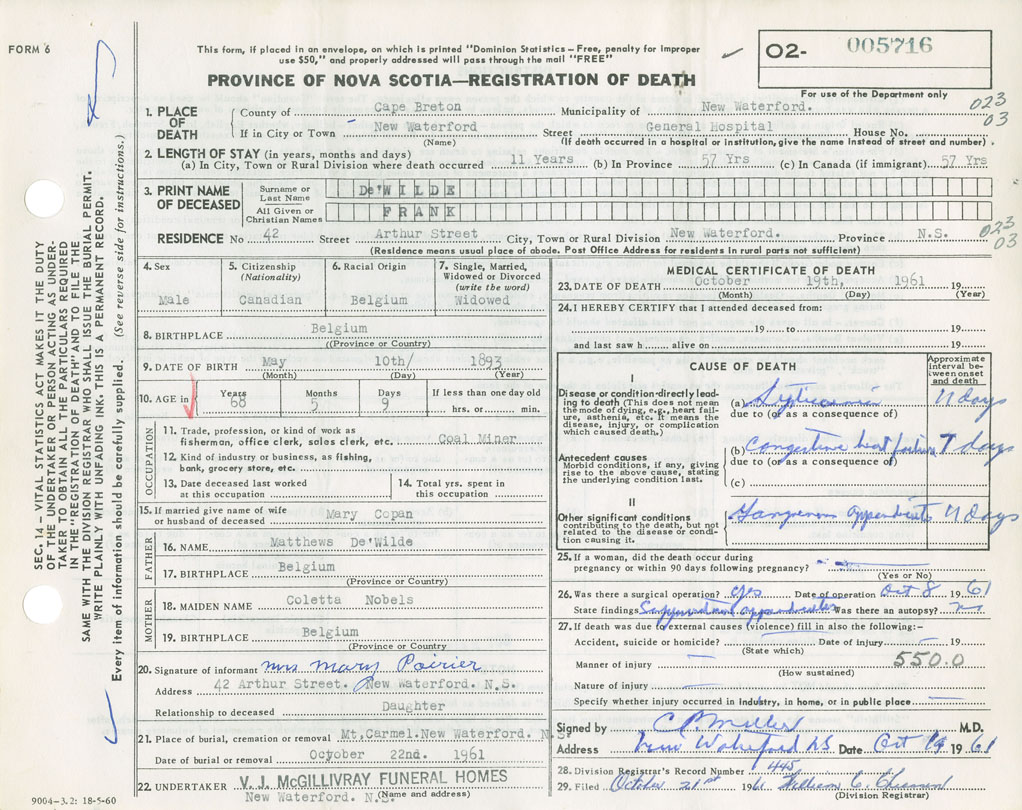 FORM 6
This form, if placed in an envelope, on which is printed "Dominion Statistics – Free, penalty for improper
use $50," and properly addressed will pass through the mail "FREE"
O2- 005716
For use of the Department only
PROVINCE OF NOVA SCOTIA—REGISTRATION OF DEATH
023
03
1. PLACE OF DEATH
County of Cape Breton Municipality of New Waterford.
If in City or Town New Waterford Street General Hospital House No.
(Name) (If death occurred in a hospital or institution, give the name instead of street and number)
2. LENGTH OF STAY (in years, months and days)
(a) In City, Town or Rural Division where death occurred 11 Years (b) In Province 57 Yrs (c) In Canada (if immigrant) 57 Yrs
3. PRINT NAME OF DECEASED
Surname or Last Name De'WILDE
All Given or Christian Names FRANK
RESIDENCE No 42 Street Arthur Street City, Town or Rural Division New Waterford. Province N.S.
023
03
(Residence means usual place of abode. Post Office Address for residents in rural parts not sufficient)
4. Sex
Male
5. Citizenship
(Nationality)
Canadian
6. Racial Origin
Belgium
7. Single, Married, Widowed or Divorced
(write the word)
Widowed
8. BIRTHPLACE Belgium
(Province or Country)
9. DATE OF BIRTH May 10th/ 1893
(Month) (Day) (Year)
10. AGE in Years 68 Months 5 Days 9 If less than one day old
hrs. or min.
OCCUPATION
11. Trade, profession, or kind of work as
fisherman, office clerk, sales clerk, etc. Coal Miner
12. Kind of industry or business, as fishing,
bank, grocery store, etc.
13. Date deceased last worked
at this occupation
14. Total yrs. spent in
this occupation
15. If married give name of wife
or husband of deceased Mary Copan
FATHER
16. NAME Matthews De'Wilde
17. BIRTHPLACE Belgium
(Province or Country)
MOTHER
18. MAIDEN NAME Coletta Nobels
19. BIRTHPLACE Belgium
(Province or Country)
20. Signature of informant Mrs Mary Poirier
Address 42 Arthur Street. New Waterford. N.S.
Relationship to deceased Daughter
21. Place of burial, cremation or removal Mt,Carmel.New Waterford. N.S.
Date of burial or removal October 22nd. 1961
22. UNDERTAKER V. J. McGILLIVRAY FUNERAL HOMES
New Waterford. N.S. (Name and address)
9004–3.2: 18-5-60
MEDICAL CERTIFICATE OF DEATH
23. DATE OF DEATH October 19th, 1961 19
(Month) (Day) (Year)
24. I HEREBY CERTIFY that I attended deceased from:
19 to 19
and last saw h alive on 19
CAUSE OF DEATH
Approximate interval between onset and death
I
Disease or condition directly leading to death (This does not mean
the mode of dying, e.g., heart failure, asthenia, etc. It means the
disease, injury, or complication
which caused death.)
(a) Septicemia 11 days
due to (or as a consequence of)
Antecedent causes
Morbid conditions, if any, giving
rise to the above cause, stating
the underlying condition last.
(b) Congestive heart failure 7 days
due to (or as a consequence of)
(c)
II
Other significant conditions
contributing to the death, but not
related to the disease or condition causing it.
Gangrenous appendicitis 11 days
25. If a woman, did the death occur during
pregnancy or within 90 days following pregnancy?
(Yes or No)
26. Was there a surgical operation? yes Date of operation Oct 8 1961
State findings appendicitis Was there an autopsy? no
27. If death was due to external causes (violence) fill in also the following:–
Accident, suicide or homicide? Date of injury 19
(State which)
Manner of injury 550.0
(How sustained)
Nature of injury
Specify whether injury occurred in Industry, in home, or in public place
Signed by M.D.
Address New Waterford NS Date Oct 19 1961
28. Division Registrar's Record Number 445
29. Filed October 21st 1961 William C
(Division Registrar)
SEC. 14 – VITAL STATISTICS ACT MAKES IT THE DUTY
OF THE UNDERTAKER OR PERSON ACTING AS UNDERTAKER TO OBTAIN ALL THE PARTICULARS REQUIRED
IN THE "REGISTRATION OF DEATH" AND TO FILE THE
SAME WITH THE DIVISION REGISTRAR WHO SHALL ISSUE THE BURIAL PERMIT.
WRITE PLAINLY WITH UNFADING INK. THIS IS A PERMANENT RECORD.
Every item of information should be carefully supplied. (See reverse side for instructions.)